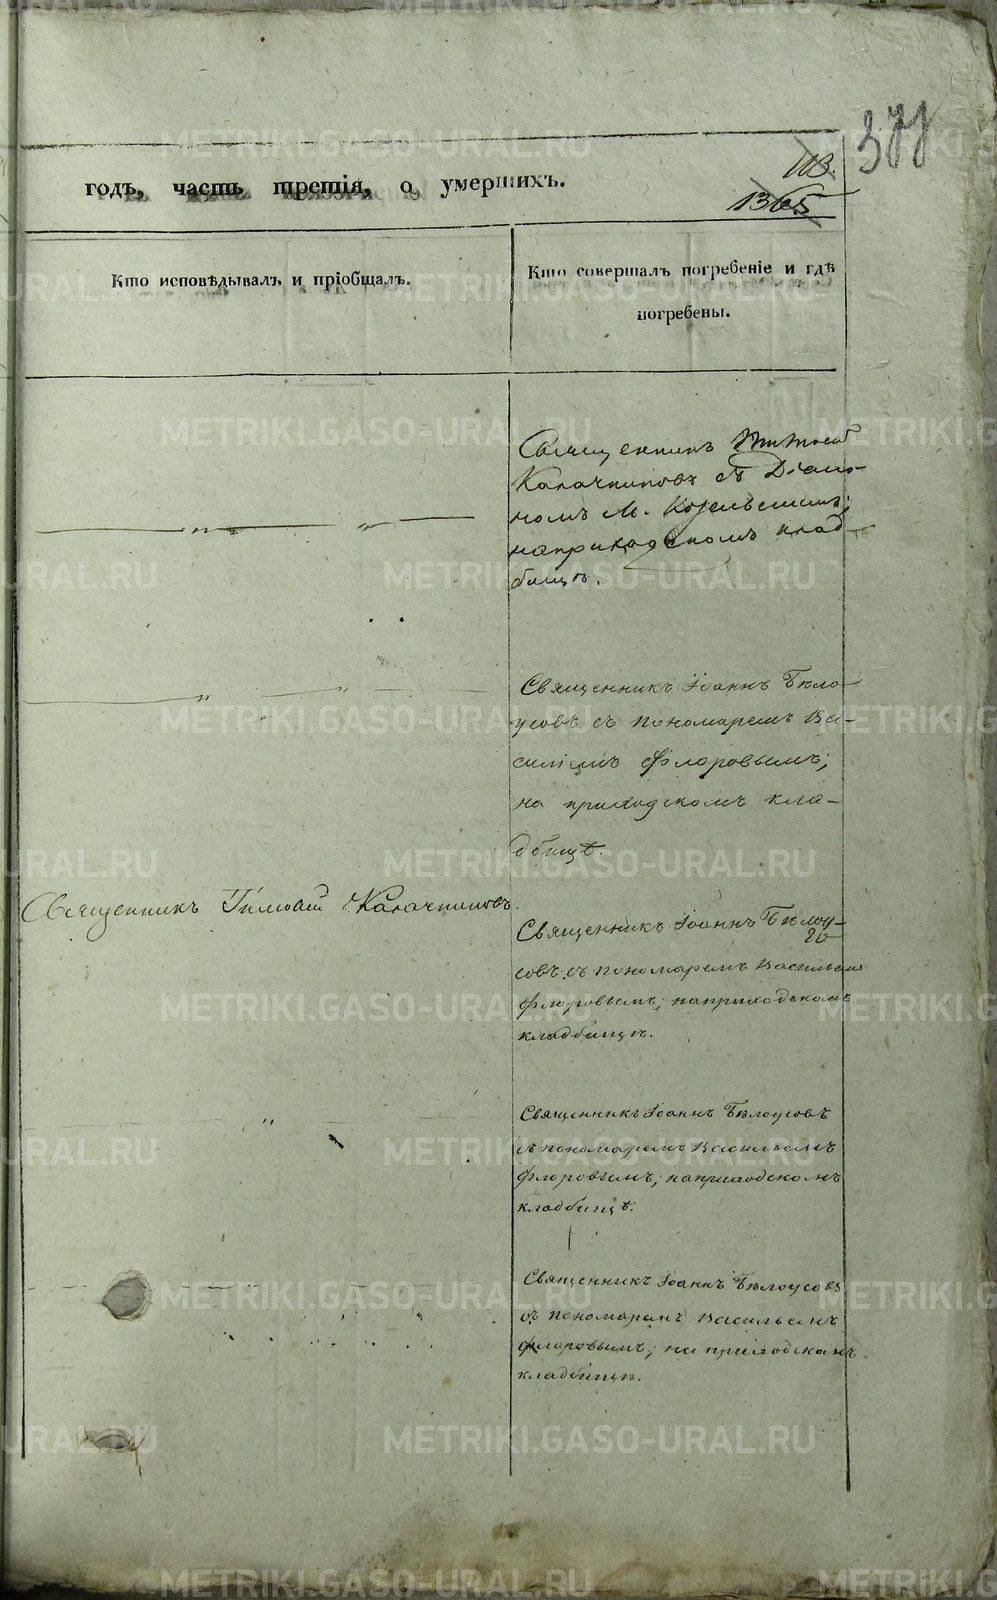 377
113.
1365
годъ, часть третія, о умершихъ.
Кто исповѣдывалъ и пріобщалъ.
Кто совершалъ погребеніе и гдѣ
погребены.
Священникъ
Калачниковъ съ Діако-
номъ М.
на приходскомъ клад-
бищѣ.
Священникъ Іоаннъ Бѣло-
усовъ съ пономаремъ Ва-
силіемъ Флоровымъ;
на приходскомъ кла-
дбищѣ.
Священникъ Калачниковъ.
Священникъ Іоаннъ Бѣлоу-
совъ съ пономаремъ Васильемъ
Флоровымъ; на приходскомъ
кладбищѣ.
Священникъ Іоаннъ Бѣлоусовъ
съ пономаремъ Васильемъ
Флоровымъ; на приходскомъ
кладбищѣ.
Священникъ Іоаннъ Бѣлоусовъ
съ пономаремъ Васильемъ
Флоровымъ; на приходскомъ
кладбищѣ.
METRIKI.GASO-URAL.RU